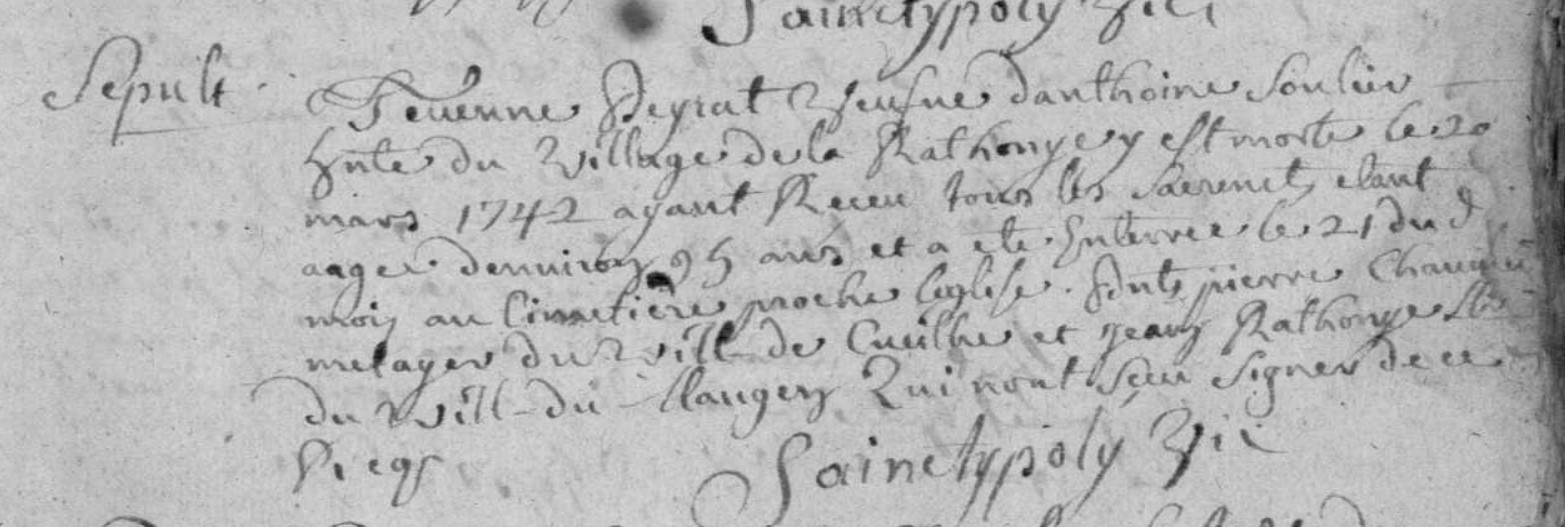 Sainctypoly Vic
Sepult.
Tevenne Peyrat Veufve danthoine Soulier
hnte du Village de la Rathonye y est morte le 20
mars 1742 ayant Receu tous les Sacrents etant
aagee denviron 95 ans et a ete Enterree le 21 du d
mois au Cimetiere proche leglise. Pnts pierre
metayer du Vill de Cueilhe et jean Rathonye
du Vill du Naugen Qui nont sceu signer de ce
Sainctypoly Vic